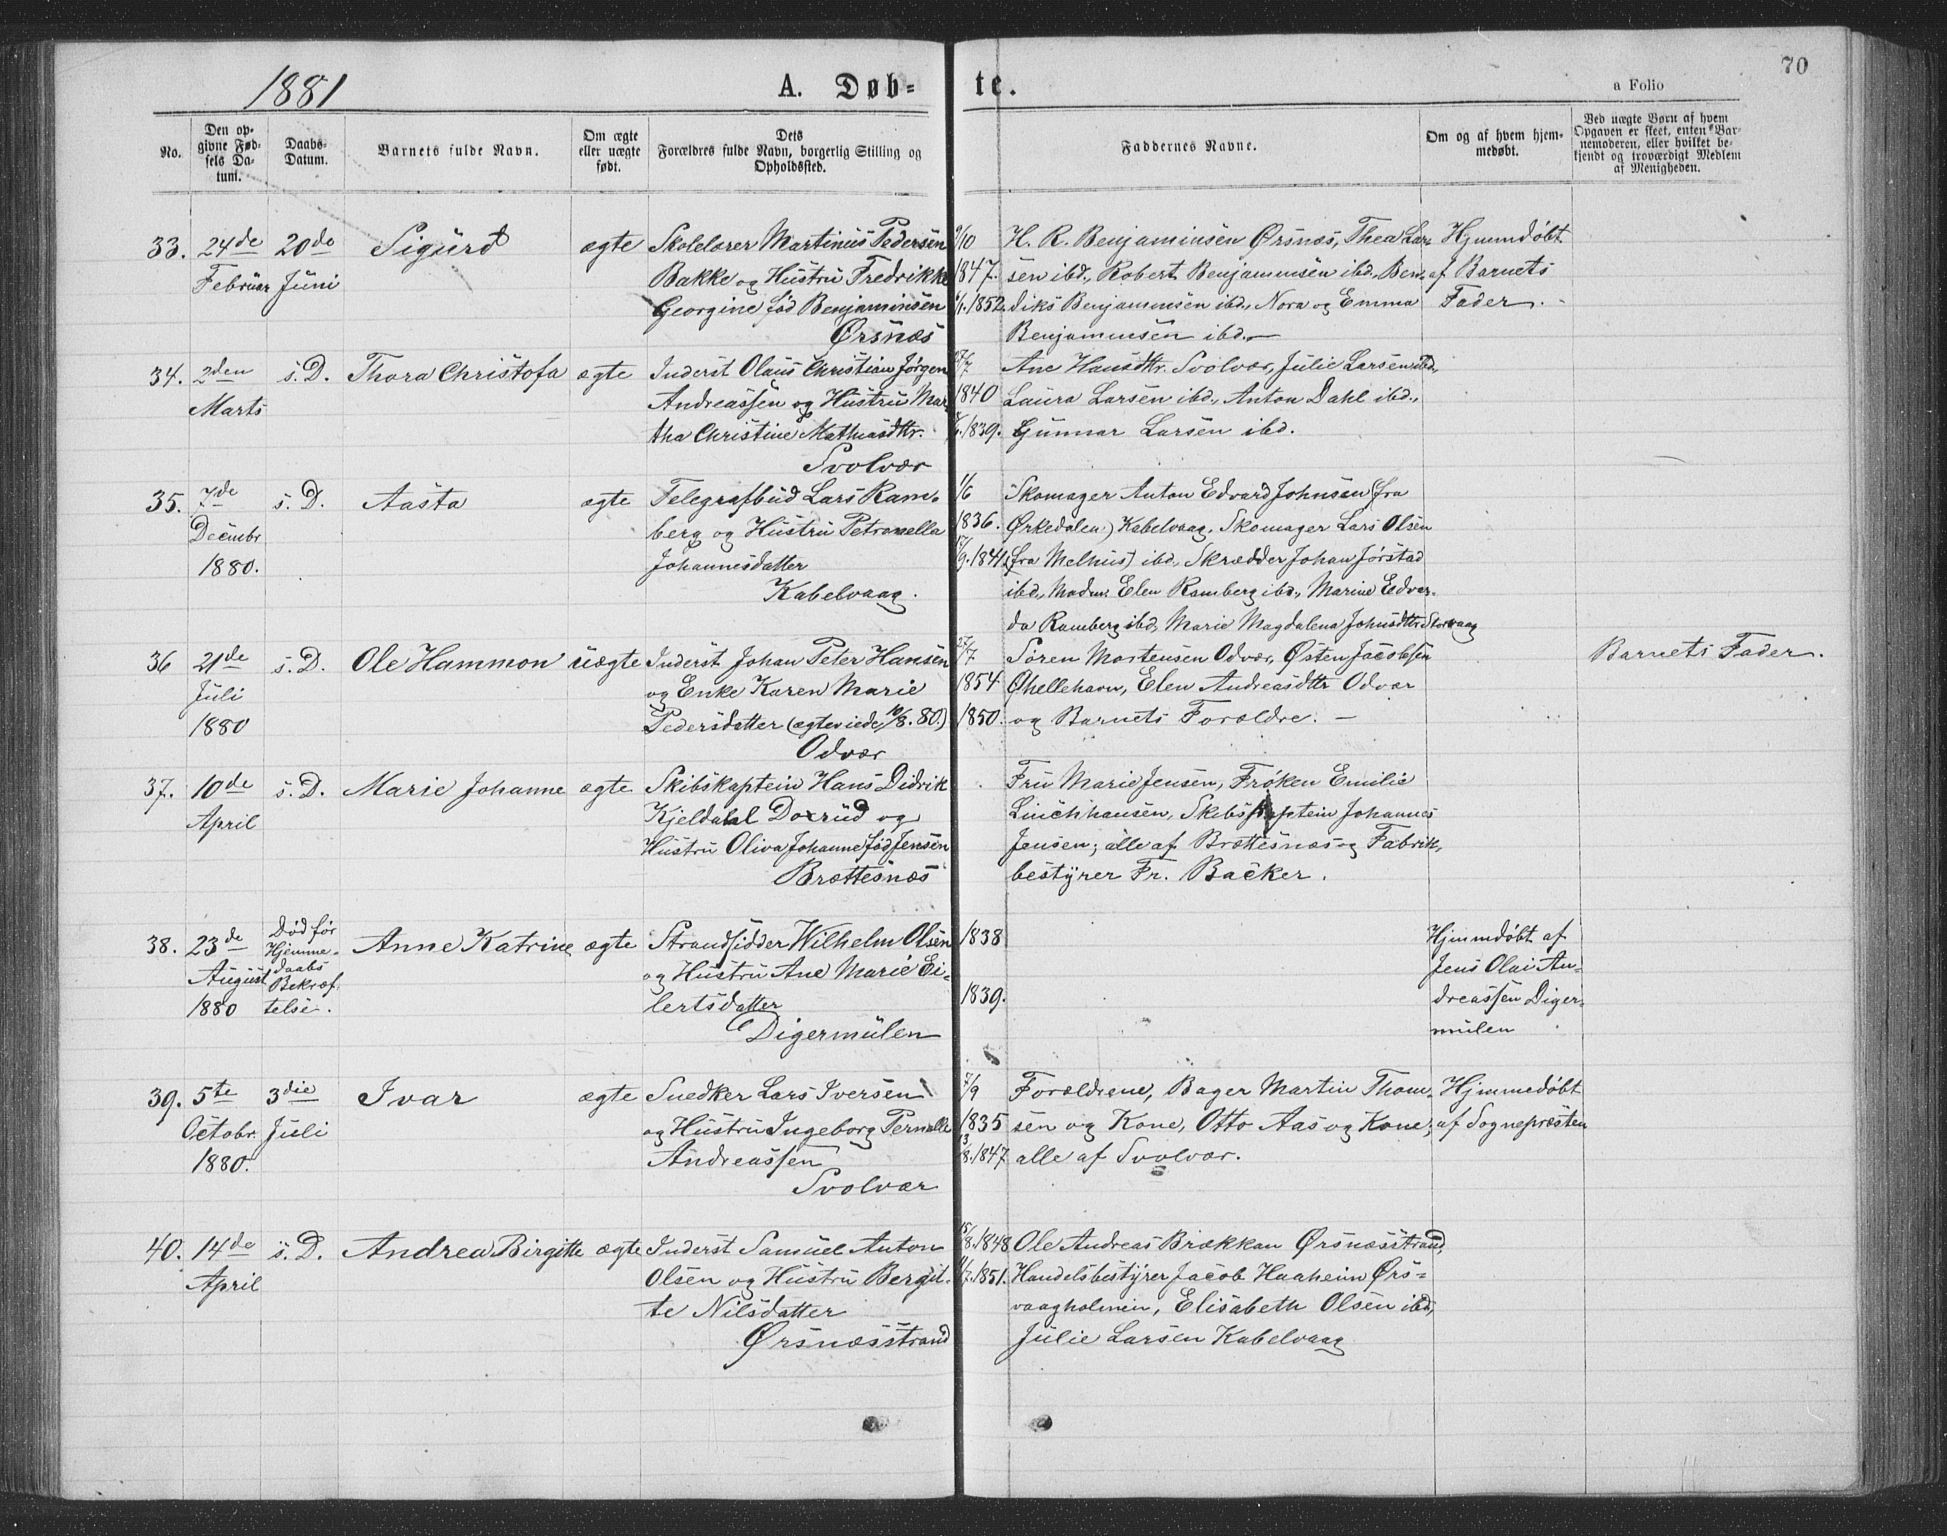 1881 A. Døb- te. 70
a Folio
No.
Den op-
givne Fød-
sels Da-
tum.
Daabs-
Datum.
Barnets fulde Navn.
Om ægte
eller uægte
født.
Dets
Forældres fulde Navn, borgerlig Stilling og
Opholdssted.
Faddernes Navne.
Om og af hvem hjem-
medøbt.
Ved uægte Børn af hvem
Opgaven er skeet, enten Bar-
nemoderen, eller hvilket be-
kjendt og troværdigt Medlem
af Menigheden.
33. 24de 20de Sigurd ægte Skolelærer Martinus Pedersen 9/10 H. R. Benjaminsen Ørsnæs, Thea Lar- Hjemmdøbt
Februar Juni Bakke og Hustru Fredrikke 1847. sen ibd., Robert Benjaminsen ibd., Ben- af Barnets
Georgine fød Benjaminsen 1852. diks Benjaminsen ibd., Nora og Emma Fader.
Ørsnæs Benjaminsen ibd.
34. 2den s. D. Thora Christofa ægte Inderst Olaus Christian Jørgen Ane Hansdtr. Svolvær, Julie Larsen ibd.,
Marts Andreassen og Hustru Mar- 1840 Laura Larsen ibd., Anton Dahl ibd.,
tha Christine Mathiasdtr. 1839. Gunnar Larsen ibd.
Svolvær
35. 7de s. D. Aasta ægte Telegrafbud Lars Ram- 1/6 Skomager Anton Edvard Johnsen (fra
Decembr berg og Hustru Petronella 1836. Ørkedalen) Kabelvaag, Skomager Lars Olsen
1880. Johannesdatter 1841. (fra Melhus) ibd., Skrædder Johan Jørstad
Kabelvaag. ibd., Madm. Elen Ramberg ibd., Marine Edvar-
da Ramberg ibd., Marie Magdalena Johnsdtr. Storvaag
36 21de s. D. Ole Hammon uægte Inderst Johan Peter Hansen Søren Mortensen Odvær, Østen Jacobsen Barnets Fader.
Juli og Enke Karen Marie 1854 Øhellehavn, Elen Andreasdtr Odvær
1880 Pedersdatter (ægteviede 10/8.80.) 1850. og Barnets Forældre.
Odvær
37. 10de s. D. Marie Johanne ægte Skibskaptein Hans Didrik Fru Marie Jensen, Frøken Emilie
April Kjeldahl Doxrud og Linchhausen, Skibskaptein Johannes
Hustru Oliva Johanne fød Jensen Jensen; alle af Brættesnæs og Fabrik-
Brættesnæs bestyrer Fr. Backer.
38. 23de Død før Anne Katrine ægte Strandsidder Wilhelm Olsen 1838 Hjemmdøbt af
August Hjemme- og Hustru Ane Marie Ei- Jens Olai An-
1880 daabs lertsdatter 1839. dreassen Diger-
Bekræf- Digermulen mulen
telse.
39. 5te 3die Ivar ægte Snedker Lars Iversen 7/9 Forældrene, Bager Martin Thom- Hjemmedøbt
Octobr. Juli og Hustru Ingeborg Pernelle 1835 sen og Kone, Otto Aas og Kone; af Sognepræsten
1880. Andreassen 13/8.1847 alle af Svolvær.
Svolvær
40. 14de s. D. Andrea Birgitte ægte Inderst Samuel Anton 15/8.1848 Ole Andreas Brækkan Ørsnæsstrand,
April Olsen og Hustru Bergit- 1851. Handelsbestyrer Jacob Haaheim Ørs-
te Nilsdatter vaagholmen, Elisabeth Olsen ibd.,
Ørsnæsstrand Julie Larsen Kabelvaag